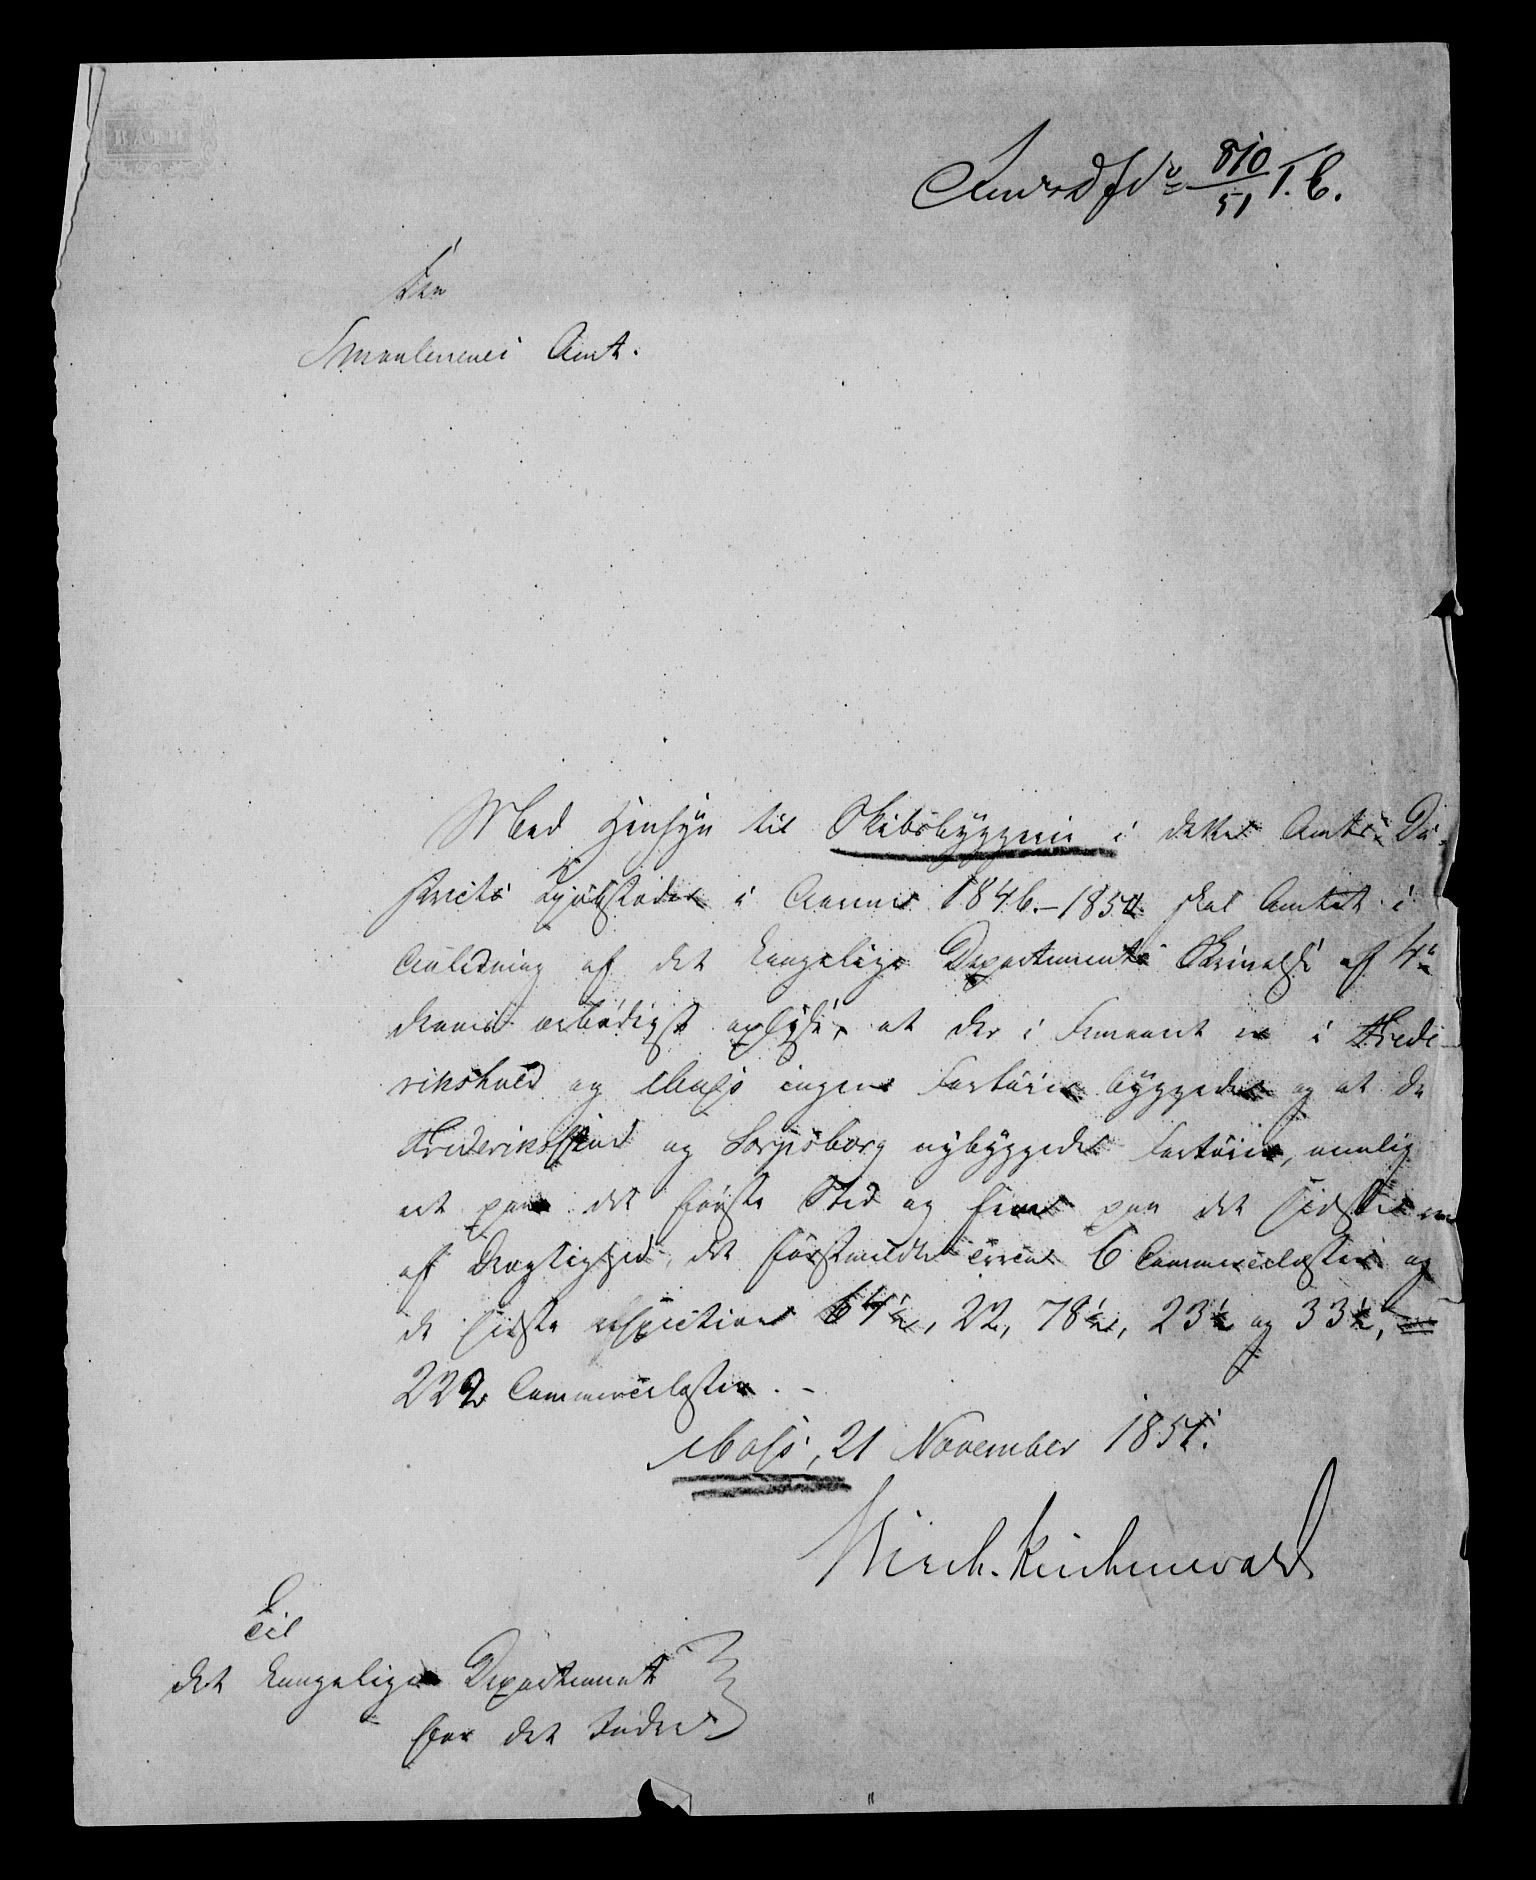 810/51 T. C.
Fra
Smaalenenes Amt.
Med Hensyn til Skibsbyggerie i dette Amts Di-
stricts Kjøbstæder i Aarene 1846-1850 skal Amtet i
Anledning af det kongelige Departements Skrivelse af 4de
dennes ærbødigst oplyse, at der i Femaaret er i Frede-
rikshald og Moss ingen Fartøier byggede og at de
Frederikstad og Sarpsborg nybyggede Fartøier, nemlig
et paa det første Sted og fem paa det sidste er
af Drægtighed, det førstmeldte circa 6 Commercelæster og
de sidste respective 64½, 22, 78½, 23½ og 33½,
222 Commercelæster. -
Moss, 21 November 1851.
Birch-Reichenwald
Til
det kongelige Departement
for det Indre